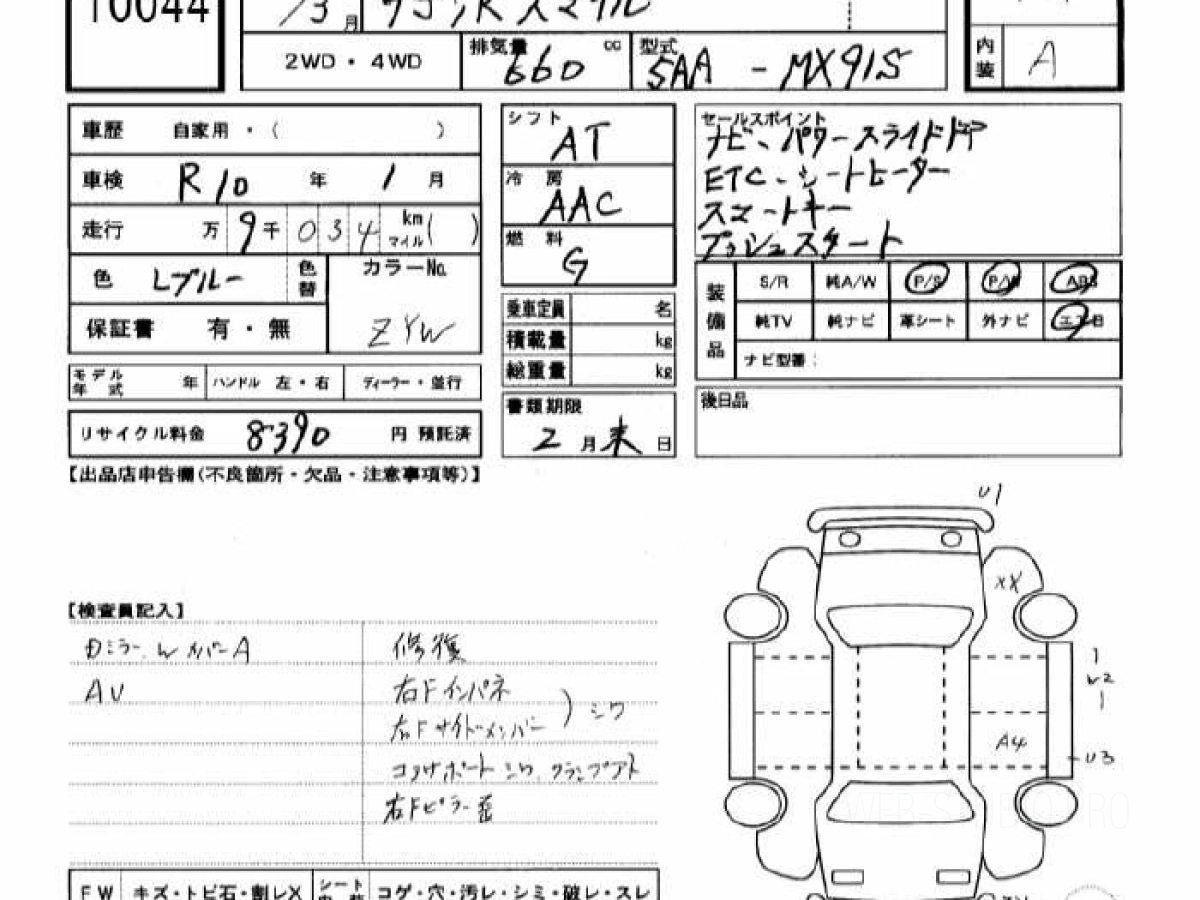 10044
/3月 ワゴンR スマイル
2WD・4WD 排気量 660 cc 型式 5AA - MX91S
内装 A
車歴 自家用・( )
車検 R10 年 1 月
走行 万 9千 034 km マイル( )
色 Lブルー 色替
カラーNo. ZYW
保証書 有・無
モデル年式 年 ハンドル 左・右 ディーラー・並行
リサイクル料金 8390 円 預託済
シフト AT
冷房 AAC
燃料 G
乗車定員 名
積載量 kg
総重量 kg
書類期限
2月末日
セールスポイント
ナビ、パワースライドドア
ETC、シートヒーター
スマートキー
プッシュスタート
装備品
S/R 純A/W P/S P/W ABS
純TV 純ナビ 革シート 外ナビ エアB
ナビ型番:
後日品
【出品店申告欄(不良箇所・欠品・注意事項等)】
【検査員記入】
AU
修復
右Fインパネ
右Fサイドメンバー ) シワ
コアサポート シワ、クランプアト
右Fピラー歪
U1
XX
1
W2
1
A4
U3
FW キズ・トビ石・割レX シート内装 コゲ・穴・汚レ・シミ・破レ・スレ